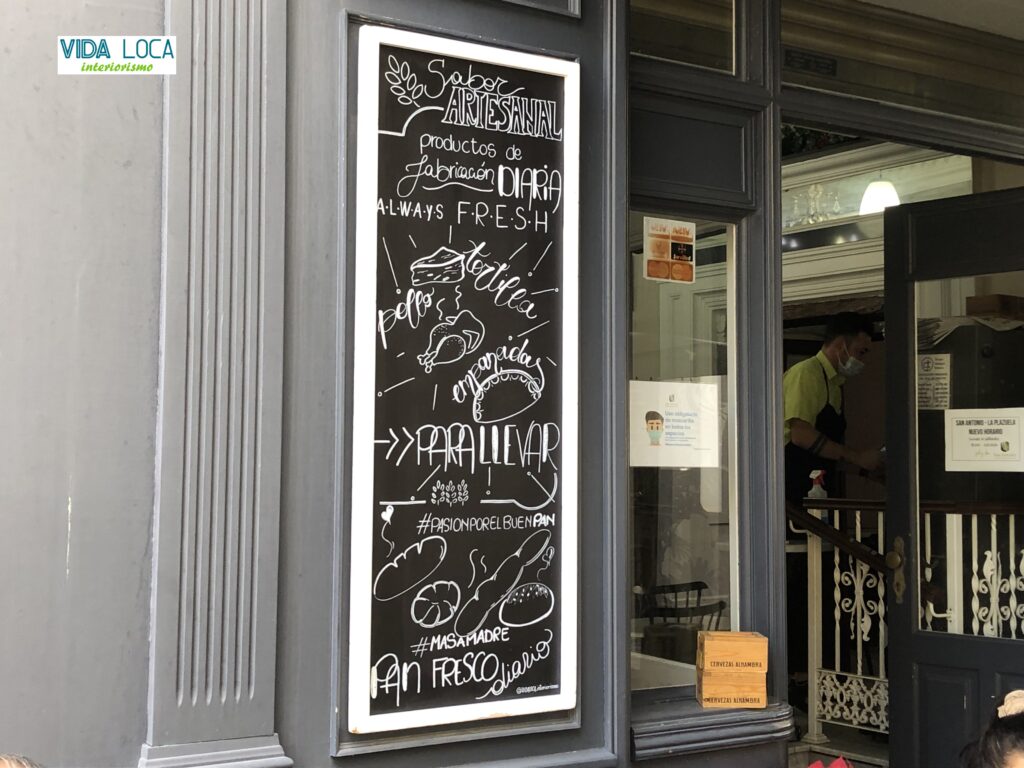 VIDA LOCA
interiorismo
Sabor
ARTESANAL
productos de
fabricación DIARIA
A·L·W·A·Y·S F·R·E·S·H
tortilla
pollo
empanadas
PARA LLEVAR
#PASIONPORELBUENPAN
#MASAMADRE
PAN FRESCO diario
Uso obligatorio
de mascarilla
en todos los
espacios
SAN ANTONIO - LA PLAZUELA
NUEVO HORARIO
CERVEZAS ALHAMBRA
CERVEZAS ALHAMBRA